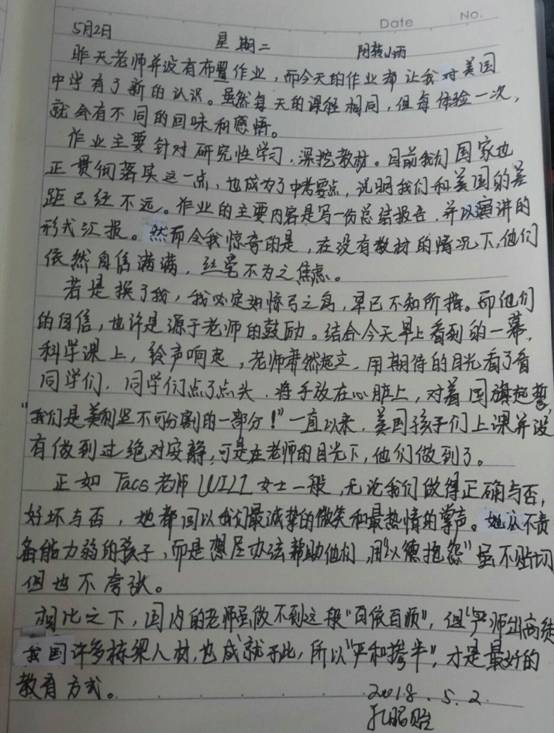 Date No.
5月2日 星期二 阴转小雨
昨天老师并没有布置作业,而今天的作业却让我对美国
中学有了新的认识。虽然每天的课程相同,但每体验一次,
就会有不同的回味和感悟。
作业主要针对研究性学习,深挖教材。目前我们国家也
正贯彻落实这一点,也成为了中考要点,说明我们和美国的差
距已经不远。作业的主要内容是写一份总结报告,并以演讲的
形式汇报。然而令我惊奇的是,在没有教材的情况下,他们
依然自信满满,丝毫不为之焦虑。
若是换了我,我必定如惊弓之鸟,早已不知所措。而他们
的自信,也许是源于老师的鼓励。结合今天早上看到的一幕,
科学课上,铃声响起,老师肃然起立,用期待的目光看了看
同学们,同学们点了点头,将手放在心脏上,对着国旗起誓
“我们是美利坚不可分割的一部分!”一直以来,美国孩子们上课并没
有做到过绝对安静,可是在老师的目光下,他们做到了。
正如Tacs老师WILL女士一般,无论我们做得正确与否,
好坏与否,她都回以我们最诚挚的微笑和最热情的掌声。她从不责
备能力弱的孩子,而是想尽办法帮助他们,用“以德抱怨”虽不贴切
但也不夸张。
相比之下,国内的老师虽做不到这般“百依百顺”,但“严师出高徒
我国许多栋梁人材,也成就于此,所以“严和掺半”,才是最好的
教育方式。
2018.5.2